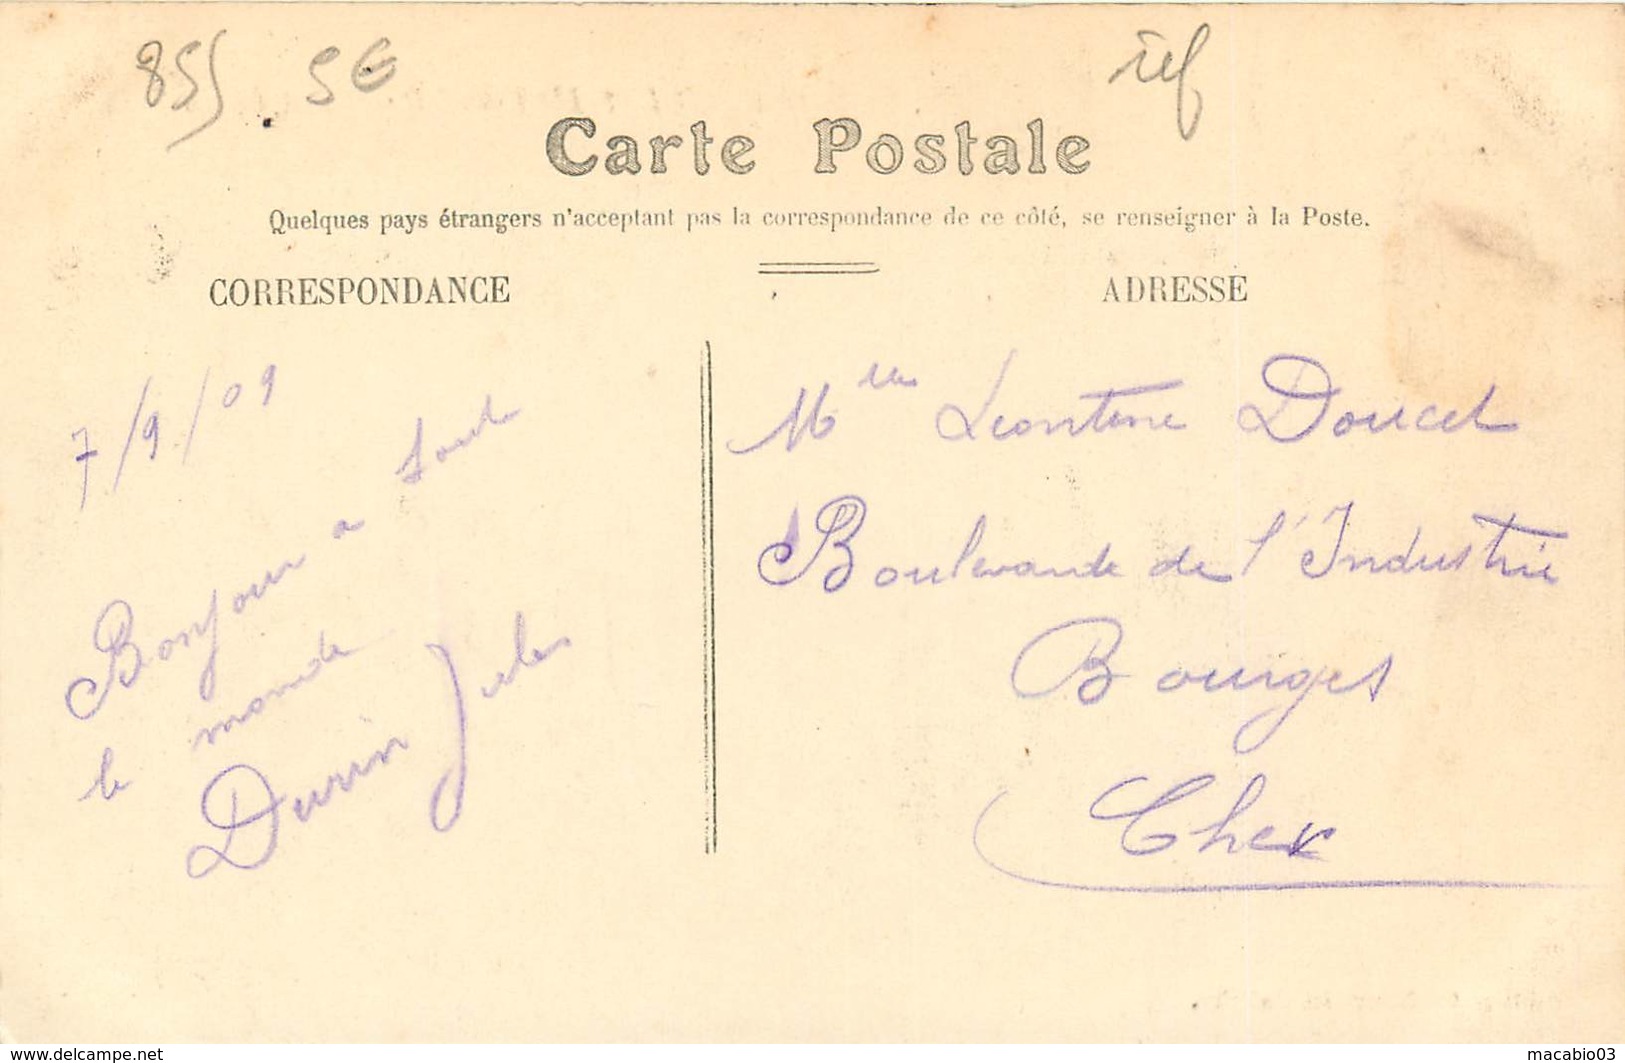 855 5€
Carte Postale
Quelques pays étrangers n'acceptant pas la correspondance de ce côté, se renseigner à la Poste.
CORRESPONDANCE
7/9/09
Bonjour a tout
le monde
Durin Jules
ADRESSE
Mlle Leontine Doucet
Boulevande de l'Industrie
Bourges
Cher
www.delcampe.net
macabio03